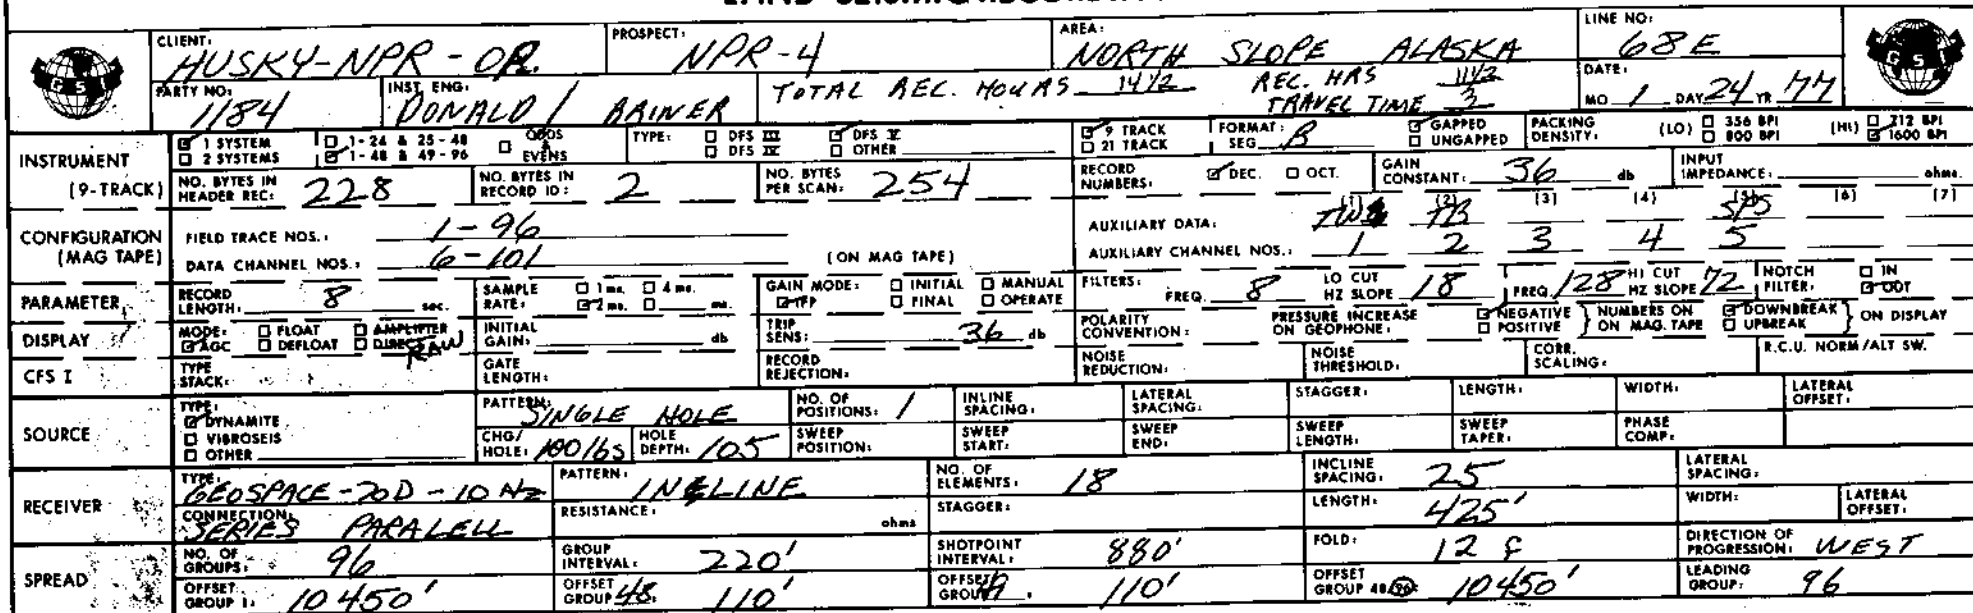 CLIENT: HUSKY-NPR-OR. PROSPECT: NPR-4 AREA: NORTH SLOPE ALASKA LINE NO: 68E
GSI GSI
PARTY NO: 1184 INST. ENG: DONALD BRINER TOTAL REC. HOURS 14 1/2 REC. HRS 11 1/2 TRAVEL TIME 3 DATE: MO 1 DAY 24 YR 77
INSTRUMENT (9-TRACK)
1 SYSTEM 1-24 & 25-48 ODDS & EVENS TYPE: DFS III DFS V 9 TRACK FORMAT: SEG B GAPPED PACKING DENSITY: (LO) 356 BPI (HI) 212 BPI
2 SYSTEMS 1-48 & 49-96 DFS IV OTHER 21 TRACK UNGAPPED 800 BPI 1600 BPI
NO. BYTES IN HEADER REC: 228 NO. BYTES IN RECORD ID: 2 NO. BYTES PER SCAN: 254 RECORD NUMBERS: DEC. OCT. GAIN CONSTANT: 36 db INPUT IMPEDANCE: ohms.
CONFIGURATION (MAG TAPE)
FIELD TRACE NOS.: 1-96 AUXILIARY DATA: (1) (2) TB (3) (4) (5) SPS (6) (7)
DATA CHANNEL NOS.: 6-101 (ON MAG TAPE) AUXILIARY CHANNEL NOS.: 1 2 3 4 5
PARAMETER RECORD LENGTH: 8 sec. SAMPLE RATE: 1 ms. 4 ms. 2 ms. ms. GAIN MODE: INITIAL MANUAL IFP FINAL OPERATE FILTERS: FREQ. 8 LO CUT HZ SLOPE 18 FREQ. 128 HI CUT HZ SLOPE 72 NOTCH FILTER: IN OUT
DISPLAY MODE: FLOAT AMPLIFIER AGC DEFLOAT DIRECT RAW INITIAL GAIN: db TRIP SENS: 36 db POLARITY CONVENTION: PRESSURE INCREASE ON GEOPHONE: NEGATIVE POSITIVE } NUMBERS ON ON MAG. TAPE DOWNBREAK UPBREAK } ON DISPLAY
CFS I TYPE STACK: GATE LENGTH: RECORD REJECTION: NOISE REDUCTION: NOISE THRESHOLD: CORR. SCALING: R.C.U. NORM/ALT SW.
SOURCE TYPE: DYNAMITE VIBROSEIS OTHER PATTERN: SINGLE HOLE NO. OF POSITIONS: 1 INLINE SPACING: LATERAL SPACING: STAGGER: LENGTH: WIDTH: LATERAL OFFSET:
CHG/HOLE: 100 lbs HOLE DEPTH: 105 SWEEP POSITION: SWEEP START: SWEEP END: SWEEP LENGTH: SWEEP TAPER: PHASE COMP:
RECEIVER TYPE: GEOSPACE-20D-10 HZ PATTERN: INLINE NO. OF ELEMENTS: 18 INCLINE SPACING: 25 LATERAL SPACING:
CONNECTION: SERIES PARALELL RESISTANCE: ohms STAGGER: LENGTH: 425' WIDTH: LATERAL OFFSET:
SPREAD NO. OF GROUPS: 96 GROUP INTERVAL: 220' SHOTPOINT INTERVAL: 880' FOLD: 12 F DIRECTION OF PROGRESSION: WEST
OFFSET GROUP 1: 10450' OFFSET GROUP 48: 110' OFFSET GROUP 49: 110' OFFSET GROUP 48/96: 10450' LEADING GROUP: 96